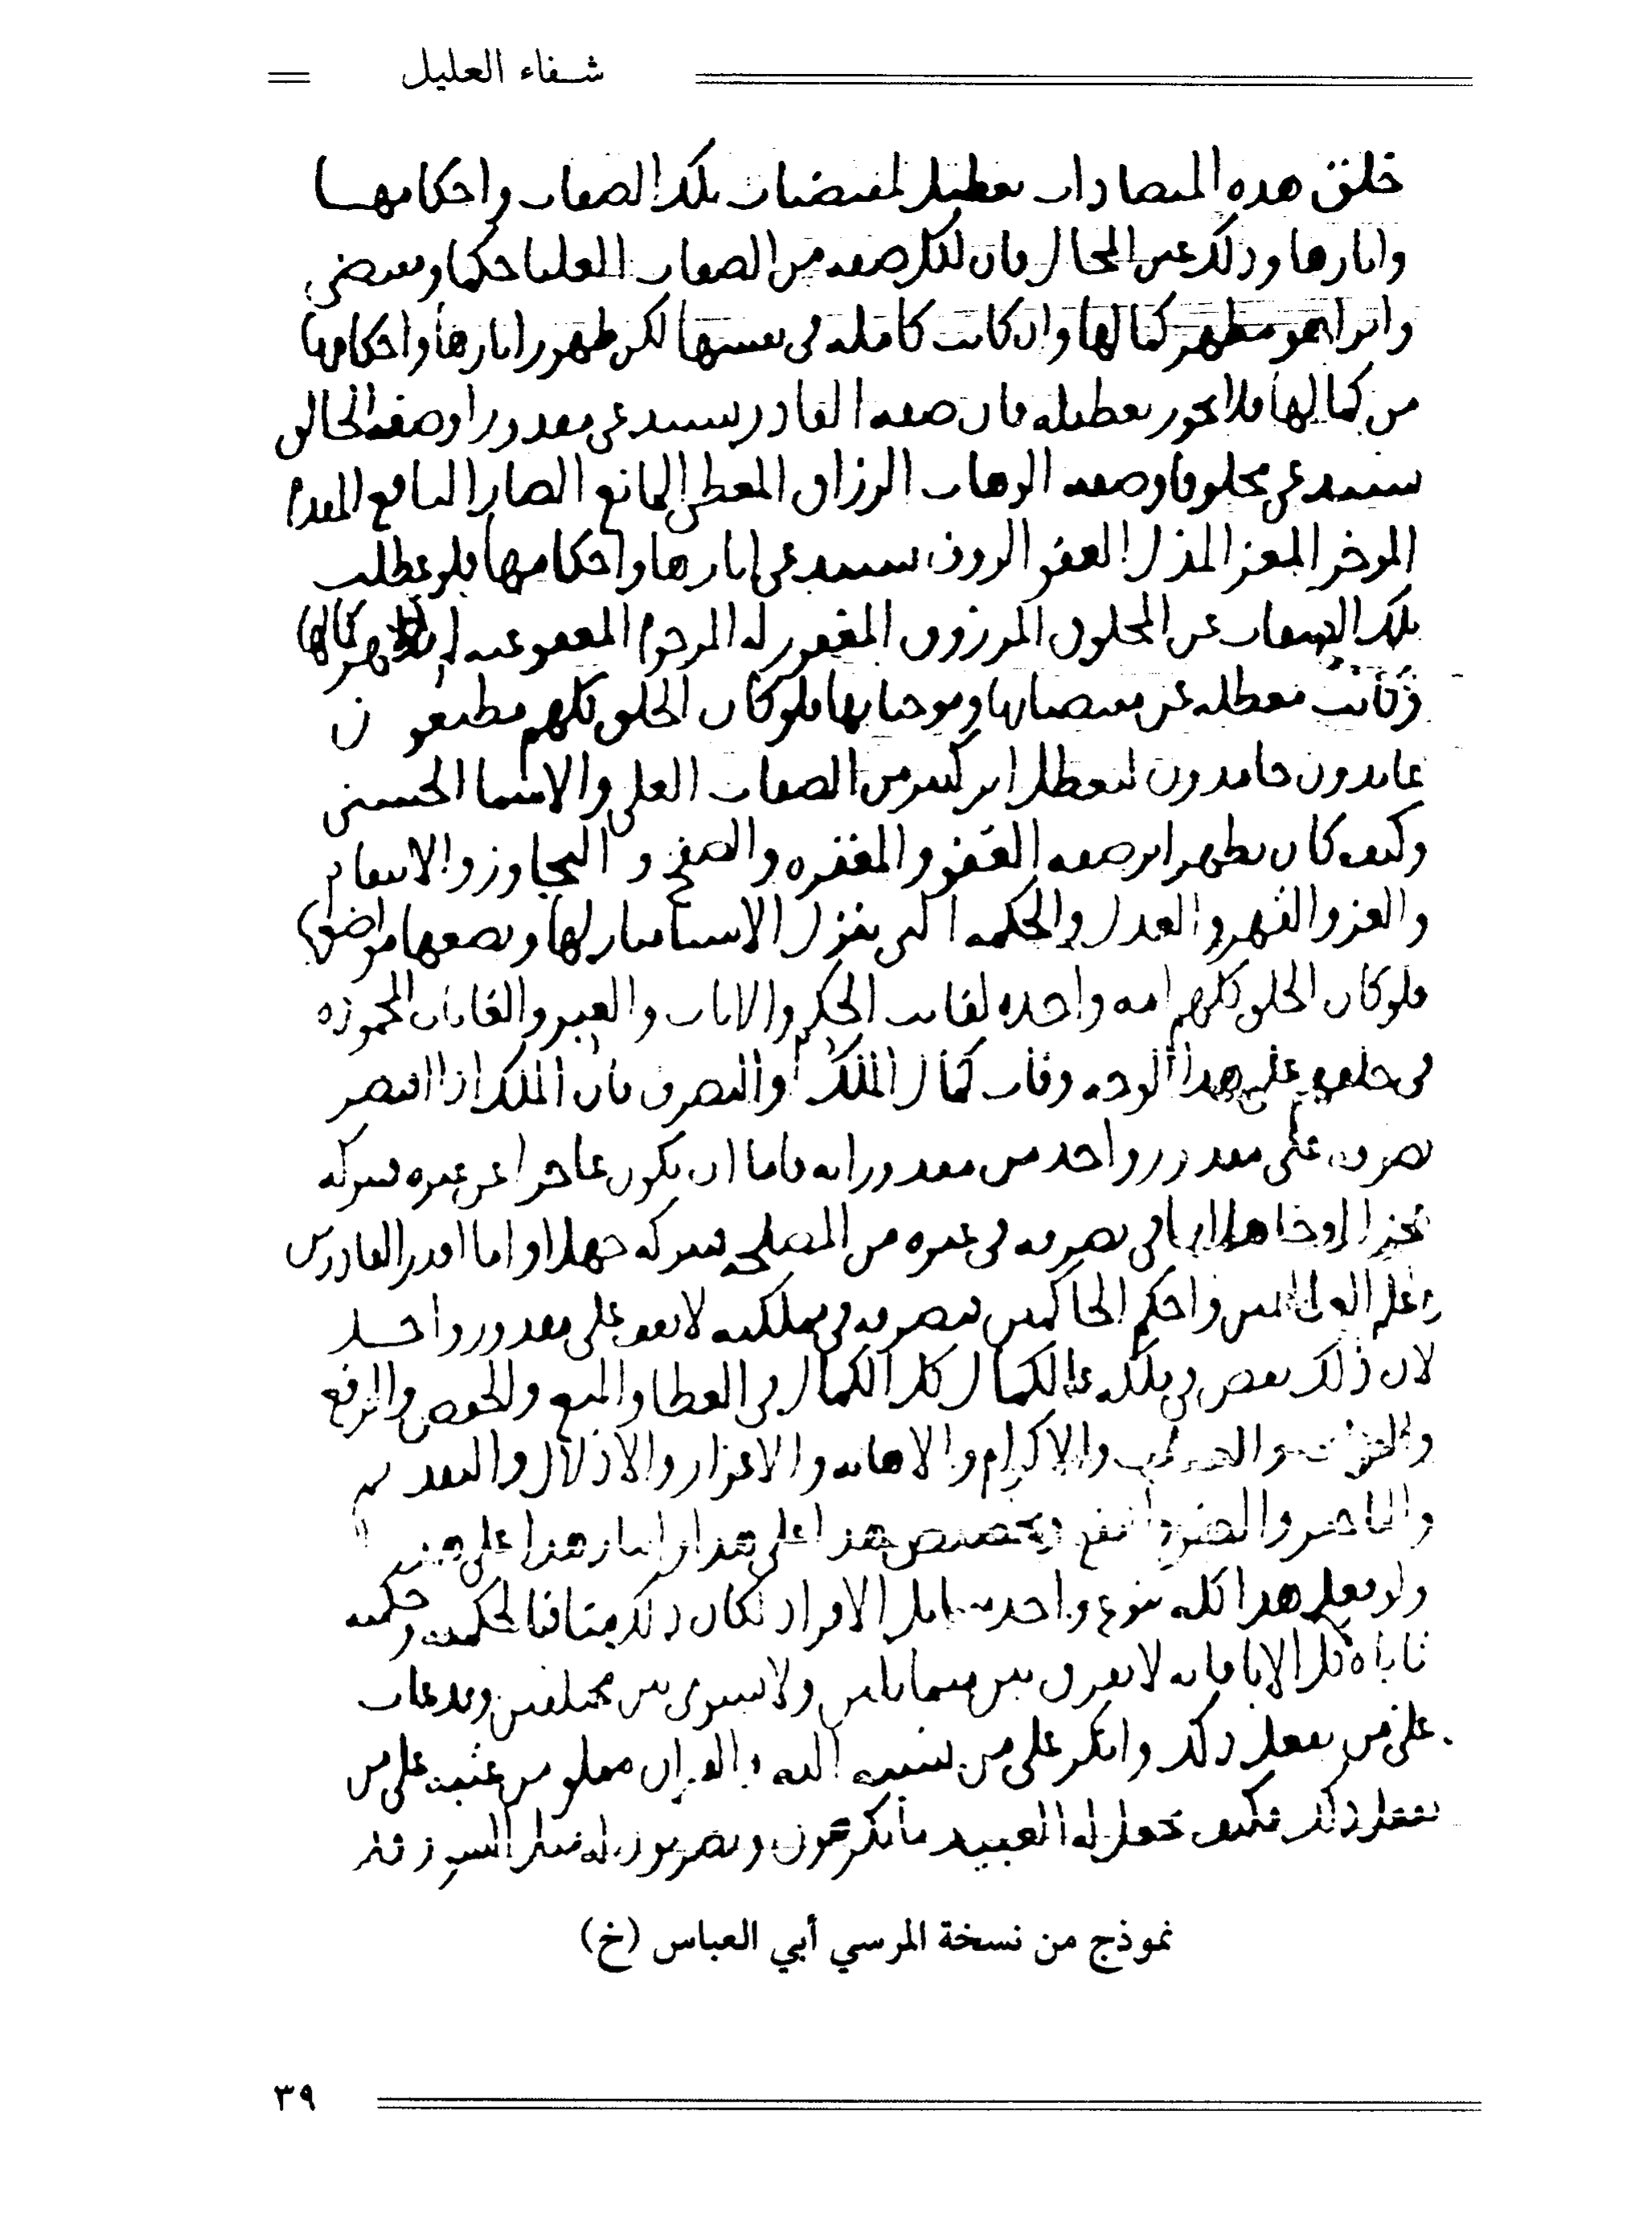 شفاء العليل
خلق هذه المتضادات تعطيل لمقتضيات تلك الصفات واحكامها
واثارها وذلك عين المحال فان لكل صفه من الصفات العليا حكما ومقتضى
واثرا هو مظهر كمالها وان كانت كامله في نفسها لكن ظهور اثارها واحكامها
من كمالها فلا يجوز تعطيله فان صفه القادر تستدعي مقدورا وصفه الخالق
تستدعي مخلوقا وصفه الوهاب الرزاق المعطي المانع الضار النافع المقدم
الموخر المعز المذل العفو الروف تستدعي اثارها واحكامها فلو عطلت
تلك الصفات عن المخلوق المرزوق المغفور له المرحوم المعفو عنه لم يظهر كمالها
وكانت معطله عن مقتضياتها وموجباتها فلو كان الخلق كلهم مطيعون
عابدون حامدون لتعطل اثر كثير من الصفات العلى والاسما الحسنى
وكيف كان يظهر اثر صفه العفو والمغفره والصفح و التجاوز والانتقام
والعز والقهر والعدل والحكمه التي تنزل الاشيا منازلها وتضعها مواضعها
فلو كان الخلق كلهم امه واحده لفاتت الحكم والايات والعبر والغايات المحموده
في خلقهم على هذا الوجه وفات كمال الملك والتصرف فان الملك اذا اقتصر
تصرفه على مقدور واحد من مقدوراته فاما ان يكون عاجزا عن غيره فيتركه
عجزا او جاهلا بما في تصرفه في غيره من المصلحه فيتركه جهلا واما اقدر القادرين
واعلم العالمين واحكم الحاكمين فتصرفه في مملكته لا يقف على مقدور واحد
لان ذلك نقص في ملكه فالكمال كل الكمال في العطا والمنع والخفض والرفع
والثواب والعقاب والاكرام والاهانه والاعزاز والاذلال والتقديم
والتاخير والضر والنفع وتخصيص هذا على هذا وايثار هذا على هذا
ولو فعل هذا كله بنوع واحد متماثل الافراد لكان ذلك منافيا لحكمته وحكمته
تاباه كل الابا فانه لا يفرق بين متماثلين ولا يسوي بين مختلفين وقد عاب
على من يفعل ذلك وانكر على من نسبه اليه والقران مملو من عيبه على من
يفعل ذلك فكيف يجعل له العبيد ما يكرهون ويضربون له مثل السو وقد
نموذج من نسخة المرسي أبي العباس (خ)
٣٩